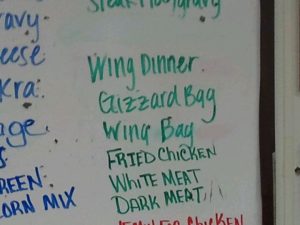 Steak
gravy
avy
eese
Wing Dinner
kra
Gizzard Bag
age
Wing Bag
FRIED CHICKEN
REEN
WHITE MEAT
ORN MIX
DARK MEAT
CHICKEN